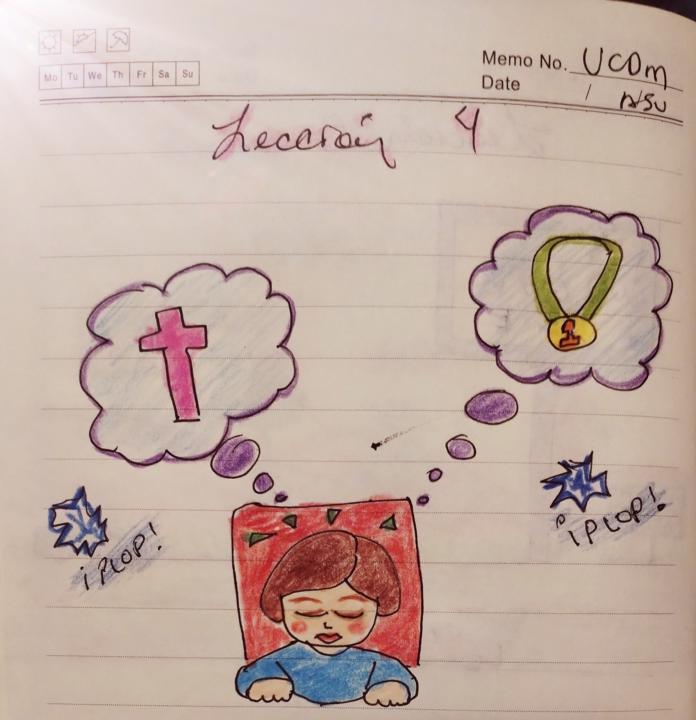 Mo Tu We Th Fr Sa Su
Memo No. UCDM
Date /
Lección 4
1
¡PLOP!
¡PLOP!